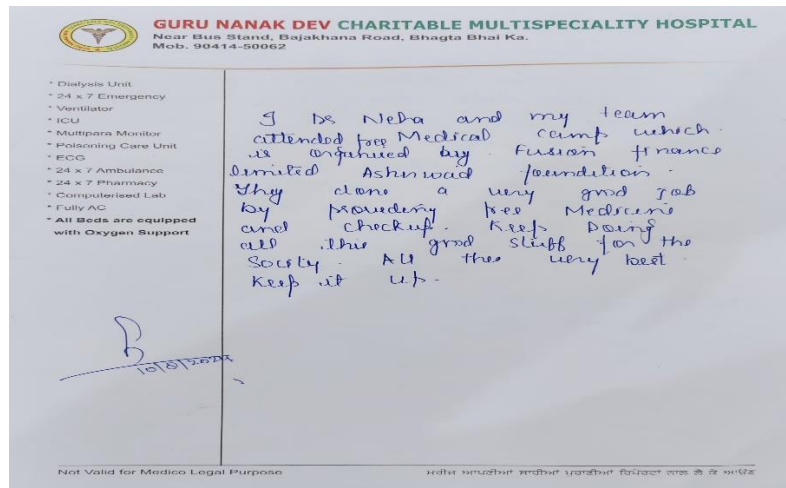 GURU NANAK DEV CHARITABLE MULTISPECIALITY HOSPITAL
Near Bus Stand, Bajakhana Road, Bhagta Bhai Ka.
Mob. 90414-50062
* Dialysis Unit
* 24 x 7 Emergency
* Ventilator
* ICU
* Multipara Monitor
* Poisoning Care Unit
* ECG
* 24 x 7 Ambulance
* 24 x 7 Pharmacy
* Computerised Lab
* Fully AC
* All Beds are equipped
with Oxygen Support
I Dr Neha and my team
attended free Medical camp which
is organised by Fusion finance
limited Ashirwad foundation.
They done a very good Job
by provideny free Medicine
and checkup. Keep Doing
all this good stuff for the
Socity. All the very best
Keep it up.
10/8/2024
Not Valid for Medico Legal Purpose
ਮਰੀਜ਼ ਆਪਣੀਆਂ ਸਾਰੀਆਂ ਪੁਰਾਣੀਆਂ ਰਿਪੋਰਟਾਂ ਨਾਲ ਲੈ ਕੇ ਆਉਣ